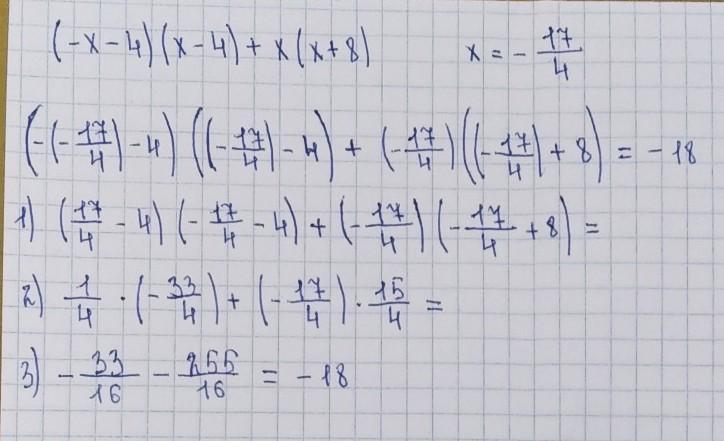 (-x-4)(x-4)+x(x+8) x = -17/4
(-(-17/4)-4)((-17/4)-4)+(-17/4)((-17/4)+8) = -18
1) (17/4-4)(-17/4-4)+(-17/4)(-17/4+8) =
2) 1/4·(-33/4)+(-17/4)·15/4 =
3) -33/16-255/16 = -18